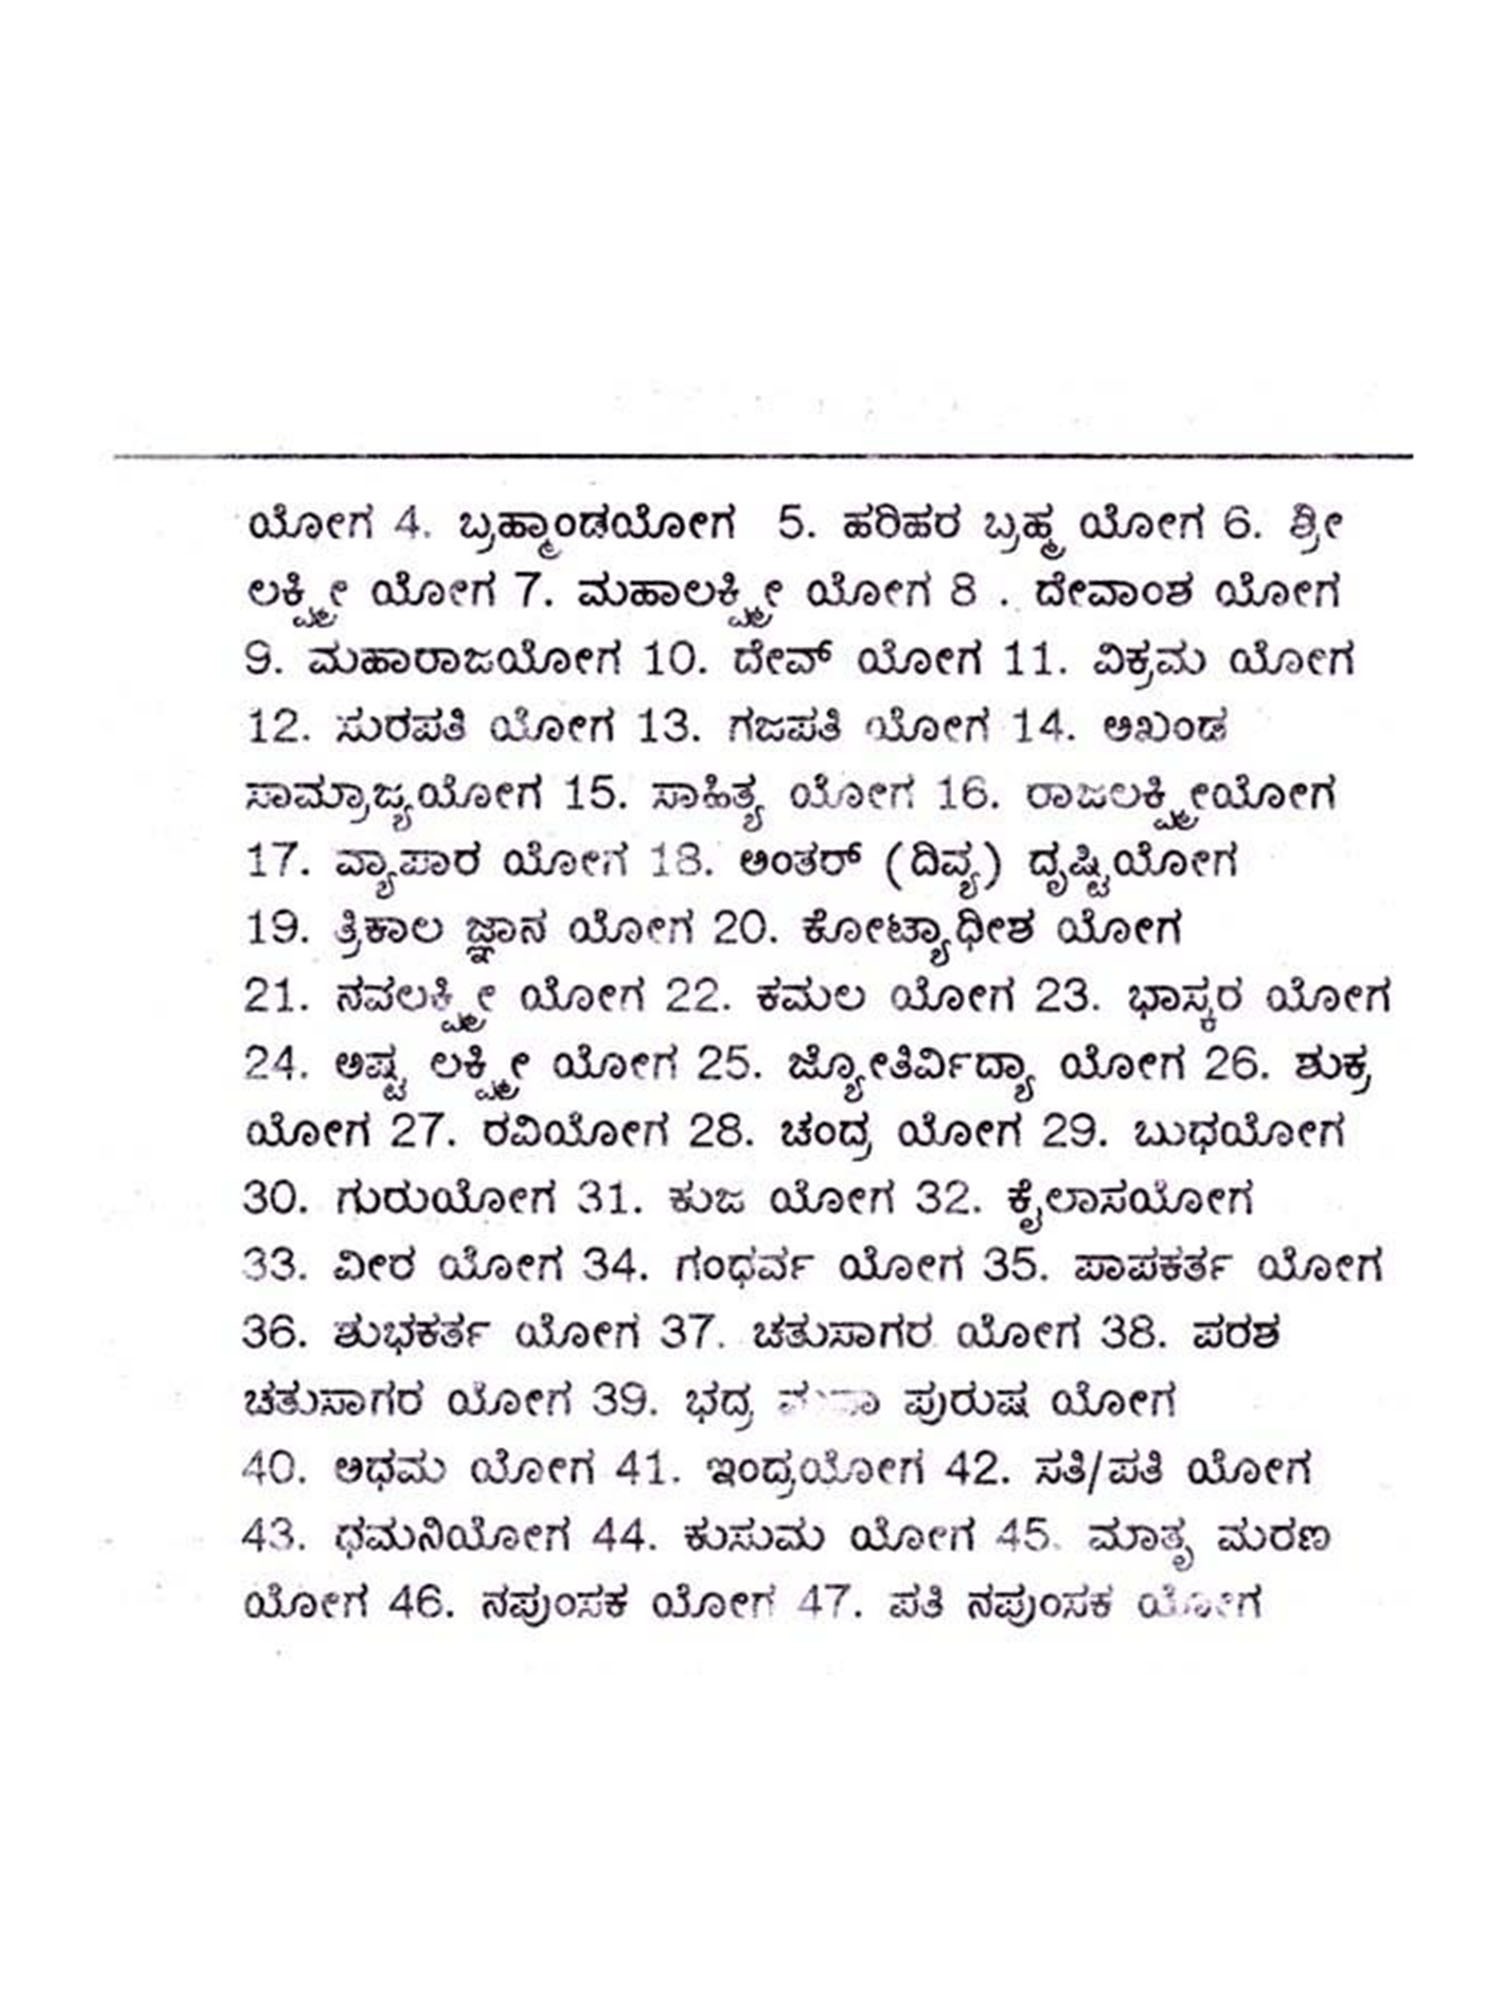 ಯೋಗ 4. ಬ್ರಹ್ಮಾಂಡಯೋಗ 5. ಹರಿಹರ ಬ್ರಹ್ಮ ಯೋಗ 6. ಶ್ರೀ
ಲಕ್ಷ್ಮೀ ಯೋಗ 7. ಮಹಾಲಕ್ಷ್ಮೀ ಯೋಗ 8 . ದೇವಾಂಶ ಯೋಗ
9. ಮಹಾರಾಜಯೋಗ 10. ದೇವ್ ಯೋಗ 11. ವಿಕ್ರಮ ಯೋಗ
12. ಸುರಪತಿ ಯೋಗ 13. ಗಜಪತಿ ಯೋಗ 14. ಅಖಂಡ
ಸಾಮ್ರಾಜ್ಯಯೋಗ 15. ಸಾಹಿತ್ಯ ಯೋಗ 16. ರಾಜಲಕ್ಷ್ಮೀಯೋಗ
17. ವ್ಯಾಪಾರ ಯೋಗ 18. ಅಂತರ್ (ದಿವ್ಯ) ದೃಷ್ಟಿಯೋಗ
19. ತ್ರಿಕಾಲ ಜ್ಞಾನ ಯೋಗ 20. ಕೋಟ್ಯಾಧೀಶ ಯೋಗ
21. ನವಲಕ್ಷ್ಮೀ ಯೋಗ 22. ಕಮಲ ಯೋಗ 23. ಭಾಸ್ಕರ ಯೋಗ
24. ಅಷ್ಟ ಲಕ್ಷ್ಮೀ ಯೋಗ 25. ಜ್ಯೋತಿರ್ವಿದ್ಯಾ ಯೋಗ 26. ಶುಕ್ರ
ಯೋಗ 27. ರವಿಯೋಗ 28. ಚಂದ್ರ ಯೋಗ 29. ಬುಧಯೋಗ
30. ಗುರುಯೋಗ 31. ಕುಜ ಯೋಗ 32. ಕೈಲಾಸಯೋಗ
33. ವೀರ ಯೋಗ 34. ಗಂಧರ್ವ ಯೋಗ 35. ಪಾಪಕರ್ತ ಯೋಗ
36. ಶುಭಕರ್ತ ಯೋಗ 37. ಚತುಸಾಗರ ಯೋಗ 38. ಪರಶ
ಚತುಸಾಗರ ಯೋಗ 39. ಭದ್ರ ಪುರುಷ ಯೋಗ
40. ಅಧಮ ಯೋಗ 41. ಇಂದ್ರಯೋಗ 42. ಸತಿ/ಪತಿ ಯೋಗ
43. ಧಮನಿಯೋಗ 44. ಕುಸುಮ ಯೋಗ 45. ಮಾತೃ ಮರಣ
ಯೋಗ 46. ನಪುಂಸಕ ಯೋಗ 47. ಪತಿ ನಪುಂಸಕ ಯೋಗ